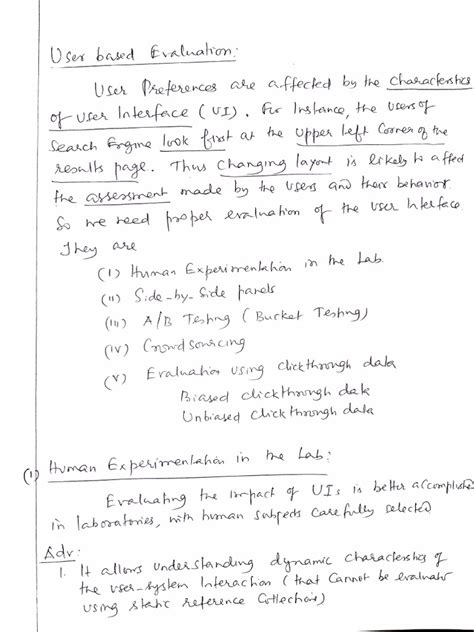 User based Evaluation:
User Preferences are affected by the characteristics
of user Interface (UI). For Instance, the users of
search Engine look first at the upper left corner of the
results page. Thus changing layout is likely to affect
the assessment made by the users and their behavior.
So we need proper evaluation of the user Interface
They are
(i) Human Experimentation in the Lab
(ii) Side-by-side panels
(iii) A/B Testing (Bucket Testing)
(iv) Crowdsourcing
(v) Evaluation using clickthrough data
Biased clickthrough data
Unbiased clickthrough data
(1) Human Experimentation in the Lab:
Evaluating the impact of UIs is better accomplished
in laboratories, with human subjects carefully selected
Adv:
1. It allows understanding dynamic characteristics of
the user-system Interaction (that cannot be evaluated
using static reference collections)